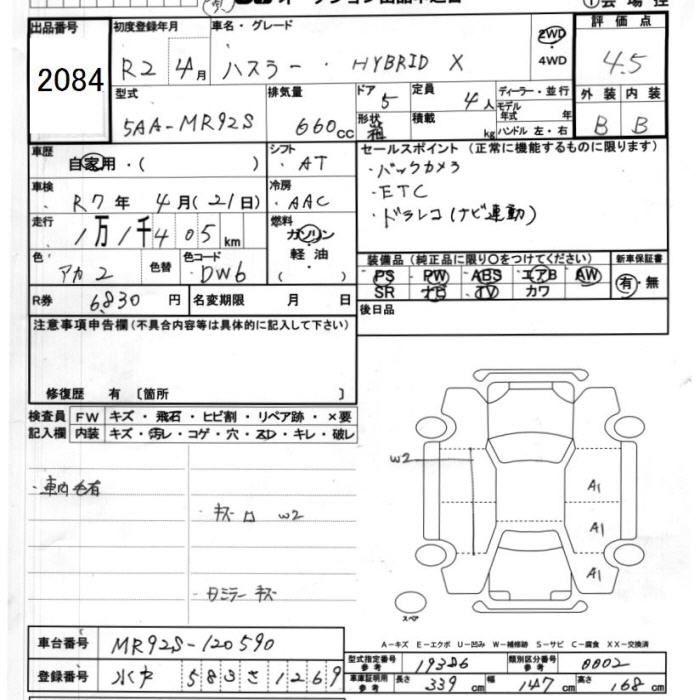 出品番号
2084
初度登録年月
R2 4月
車名・グレード
ハスラー ・ HYBRID X
2WD
・4WD
評価点
4.5
型式
5AA-MR92S
排気量
660cc
ドア
5
形状
定員
4人
積載 kg
ディーラー・並行
モデル年式 年
ハンドル 左・右
外装 内装
B B
車歴
自家用・( )
シフト
・AT
車検
・R7年 4月(21日)
冷房
・AAC
走行
1万1千405km
燃料
ガソリン
軽油
( )
色
アカ2
色替
色コード
・DW6
R券
6,830円
名変期限 月 日
セールスポイント(正常に機能するものに限ります)
・バックカメラ
・ETC
・ドラレコ(ナビ連動)
装備品(純正品に限り○をつけてください)
PS PW ABS エアB AW
SR ナビ TV カワ
新車保証書
有・無
後日品
注意事項申告欄(不具合内容等は具体的に記入して下さい)
修復歴 有〔箇所 〕
検査員記入欄
FW キズ・飛石・ヒビ割・リペア跡・×要
内装 キズ・汚レ・コゲ・穴・スレ・キレ・破レ
・車内毛有
W2
A1
A1
A1
スペア
A-キズ E-エクボ U-凹み W-補修跡 S-サビ C-腐食 XX-交換済
車台番号
MR92S-120590
登録番号
583さ1269
型式指定番号 参考
19386
類別区分番号 参考
0002
車庫証明用 参考
長さ 339cm 幅 147cm 高さ 168cm